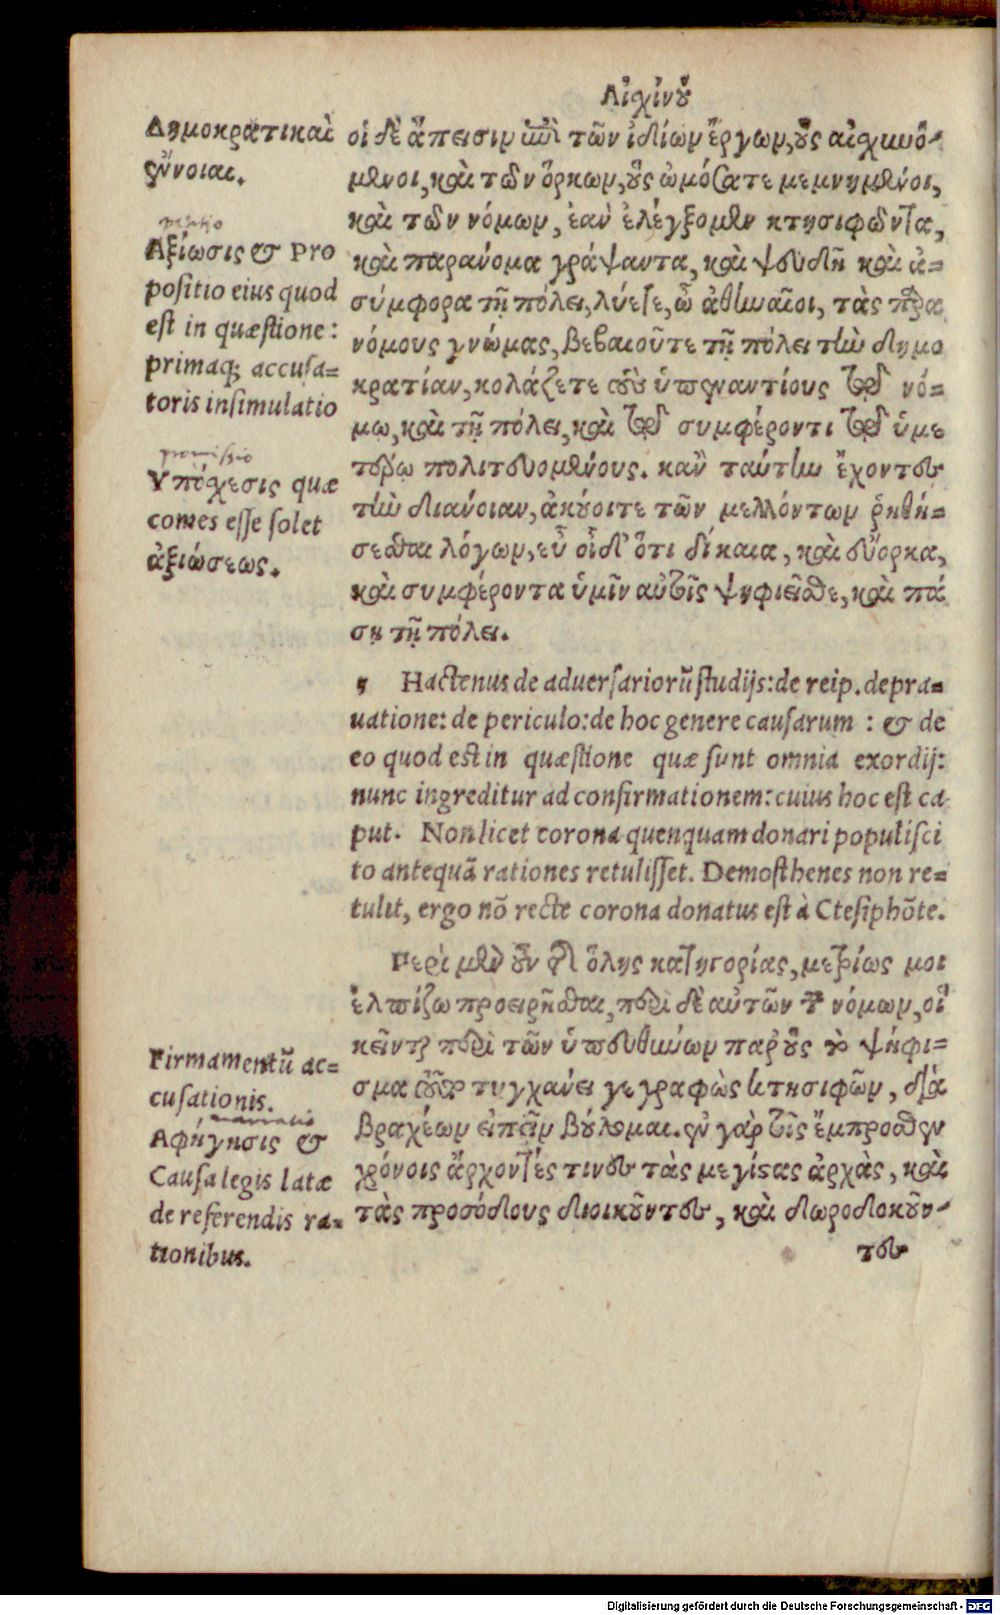 Αἰχίνου
Δημοκρατικαὶ
ἔννοιαι.
Ἀξίωσις & Pro
positio eius quod
est in quæstione:
primaq; accusa=
toris insimulatio
promissio
Υπόχεσις quæ
comes esse solet
ἀξιώσεως.
οἱ δὲ ἄπεισιν ἐπὶ τῶν ἰδίων ἔργων, οὓς αἰσχυνό-
μενοι, καὶ τῶν ὅρκων, οὓς ὠμόσατε μεμνημένοι,
καὶ τῶν νόμων, ἐὰν ἐλέγξομεν κτησιφῶντα,
καὶ παράνομα γράψαντα, καὶ ψευδῆ καὶ ἀ=
σύμφορα τῇ πόλει, λύετε, ὦ ἀθηναῖοι, τὰς παρα
νόμους γνώμας, βεβαιοῦτε τῇ πόλει τὴν δημο
κρατίαν, κολάζετε τοὺς ὑπεναντίους τῷ νό=
μῳ, καὶ τῇ πόλει, καὶ τῷ συμφέροντι τῷ ὑμε
τέρῳ πολιτευομένους. κἂν ταύτην ἔχοντες
τὴν διάνοιαν, ἀκούοιτε τῶν μελλόντων ῥηθή=
σεσθαι λόγων, εὖ οἶδ' ὅτι δίκαια, καὶ εὔορκα,
καὶ συμφέροντα ὑμῖν αὐτοῖς ψηφιεῖσθε, καὶ πά
σῃ τῇ πόλει.
Hactenus de aduersariorū studijs: de reip. depra=
uatione: de periculo: de hoc genere causarum : & de
eo quod est in quæstione quæ sunt omnia exordij:
nunc ingreditur ad confirmationem: cuius hoc est ca
put. Non licet corona quenquam donari populisci
to antequā rationes retulisset. Demosthenes non re=
tulit, ergo nō recte corona donatus est à Ctesiphōte.
Firmamentū ac=
cusationis.
narratio
Ἀφήγησις &
Causa legis latæ
de referendis ra=
tionibus.
Περὶ μὲν οὖν τῆς ὅλης κατηγορίας, μετρίως μοι
ἐλπίζω προειρῆσθαι, περὶ δὲ αὐτῶν τῶν νόμων, οἳ
κεῖνται περὶ τῶν ὑπευθύνων παρ' οὓς τὸ ψήφι=
σμα τοῦτο τυγχάνει γεγραφὼς κτησιφῶν, διὰ
βραχέων εἰπεῖν βούλομαι. ἐν γὰρ τοῖς ἔμπροσθεν
χρόνοις ἄρχοντές τινες τὰς μεγίστας ἀρχὰς, καὶ
τὰς προσόδους διοικοῦντες, καὶ δωροδοκοῦν-
τες
Digitalisierung gefördert durch die Deutsche Forschungsgemeinschaft - DFG